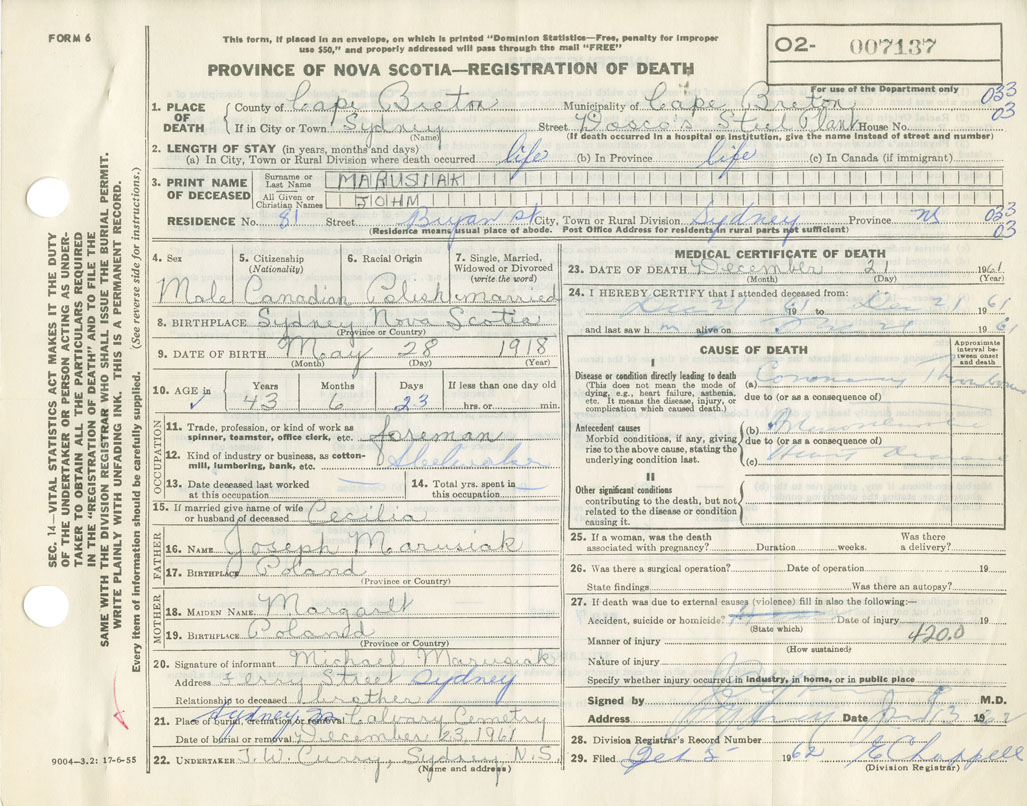 FORM 6
This form, if placed in an envelope, on which is printed "Dominion Statistics—Free, penalty for improper
use $50," and properly addressed will pass through the mail "FREE"
02- 007137
PROVINCE OF NOVA SCOTIA—REGISTRATION OF DEATH
For use of the Department only
033
03
1. PLACE OF DEATH { County of Cape Breton Municipality of Cape Breton
If in City or Town Sydney Street Dosco's Steel Plant House No.
(Name) (If death occurred in a hospital or institution, give the name instead of street and number)
2. LENGTH OF STAY (in years, months and days)
(a) In City, Town or Rural Division where death occurred life (b) In Province life (c) In Canada (if immigrant)
3. PRINT NAME OF DECEASED { Surname or Last Name MARUSIAK
All Given or Christian Names JOHN
RESIDENCE No. 81 Street Bryan St City, Town or Rural Division Sydney Province NS 033
03
(Residence means usual place of abode. Post Office Address for residents in rural parts not sufficient)
4. Sex 5. Citizenship (Nationality) 6. Racial Origin 7. Single, Married, Widowed or Divorced (write the word)
Male Canadian Polish married
8. BIRTHPLACE Sydney Nova Scotia
(Province or Country)
9. DATE OF BIRTH May 28 1918
(Month) (Day) (Year)
10. AGE in Years Months Days If less than one day old
43 6 23 hrs. or min.
OCCUPATION
11. Trade, profession, or kind of work as spinner, teamster, office clerk, etc. foreman
12. Kind of industry or business, as cotton-mill, lumbering, bank, etc. Steelmaker
13. Date deceased last worked at this occupation
14. Total yrs. spent in this occupation
15. If married give name of wife or husband of deceased Cecilia
FATHER
16. NAME Joseph Marusiak
17. BIRTHPLACE Poland
(Province or Country)
MOTHER
18. MAIDEN NAME Margaret
19. BIRTHPLACE Poland
(Province or Country)
20. Signature of informant Michael Marusiak
Address Ferry Street Sydney
Relationship to deceased brother
21. Place of burial, cremation or removal Sydney Calvary Cemetry
Date of burial or removal December 23, 1961
22. UNDERTAKER T.W. Curry, Sydney N.S.
(Name and address)
MEDICAL CERTIFICATE OF DEATH
23. DATE OF DEATH December 21 1961
(Month) (Day) (Year)
24. I HEREBY CERTIFY that I attended deceased from:
Dec 21 1961 to Dec 21 1961
and last saw h m alive on 1961
CAUSE OF DEATH
Approximate interval between onset and death
I
Disease or condition directly leading to death
(This does not mean the mode of dying, e.g., heart failure, asthenia, etc. It means the disease, injury, or complication which caused death.)
(a) Coronary Thrombosis
due to (or as a consequence of)
Antecedent causes
Morbid conditions, if any, giving rise to the above cause, stating the underlying condition last.
(b)
due to (or as a consequence of)
(c) Heart Disease
II
Other significant conditions
contributing to the death, but not related to the disease or condition causing it.
25. If a woman, was the death associated with pregnancy? Duration weeks. Was there a delivery?
26. Was there a surgical operation? Date of operation 19
State findings Was there an autopsy?
27. If death was due to external causes (violence) fill in also the following:—
Accident, suicide or homicide? Date of injury 19
(State which)
Manner of injury 420.0
(How sustained)
Nature of injury
Specify whether injury occurred in industry, in home, or in public place
Signed by M.D.
Address Sydney Date 13 1962
28. Division Registrar's Record Number
29. Filed Feb 5 1962 E Chappell
(Division Registrar)
SEC. 14—VITAL STATISTICS ACT MAKES IT THE DUTY
OF THE UNDERTAKER OR PERSON ACTING AS UNDER-
TAKER TO OBTAIN ALL THE PARTICULARS REQUIRED
IN THE "REGISTRATION OF DEATH" AND TO FILE THE
SAME WITH THE DIVISION REGISTRAR WHO SHALL ISSUE THE BURIAL PERMIT.
WRITE PLAINLY WITH UNFADING INK. THIS IS A PERMANENT RECORD.
Every item of information should be carefully supplied. (See reverse side for instructions.)
9004—3.2: 17-6-55